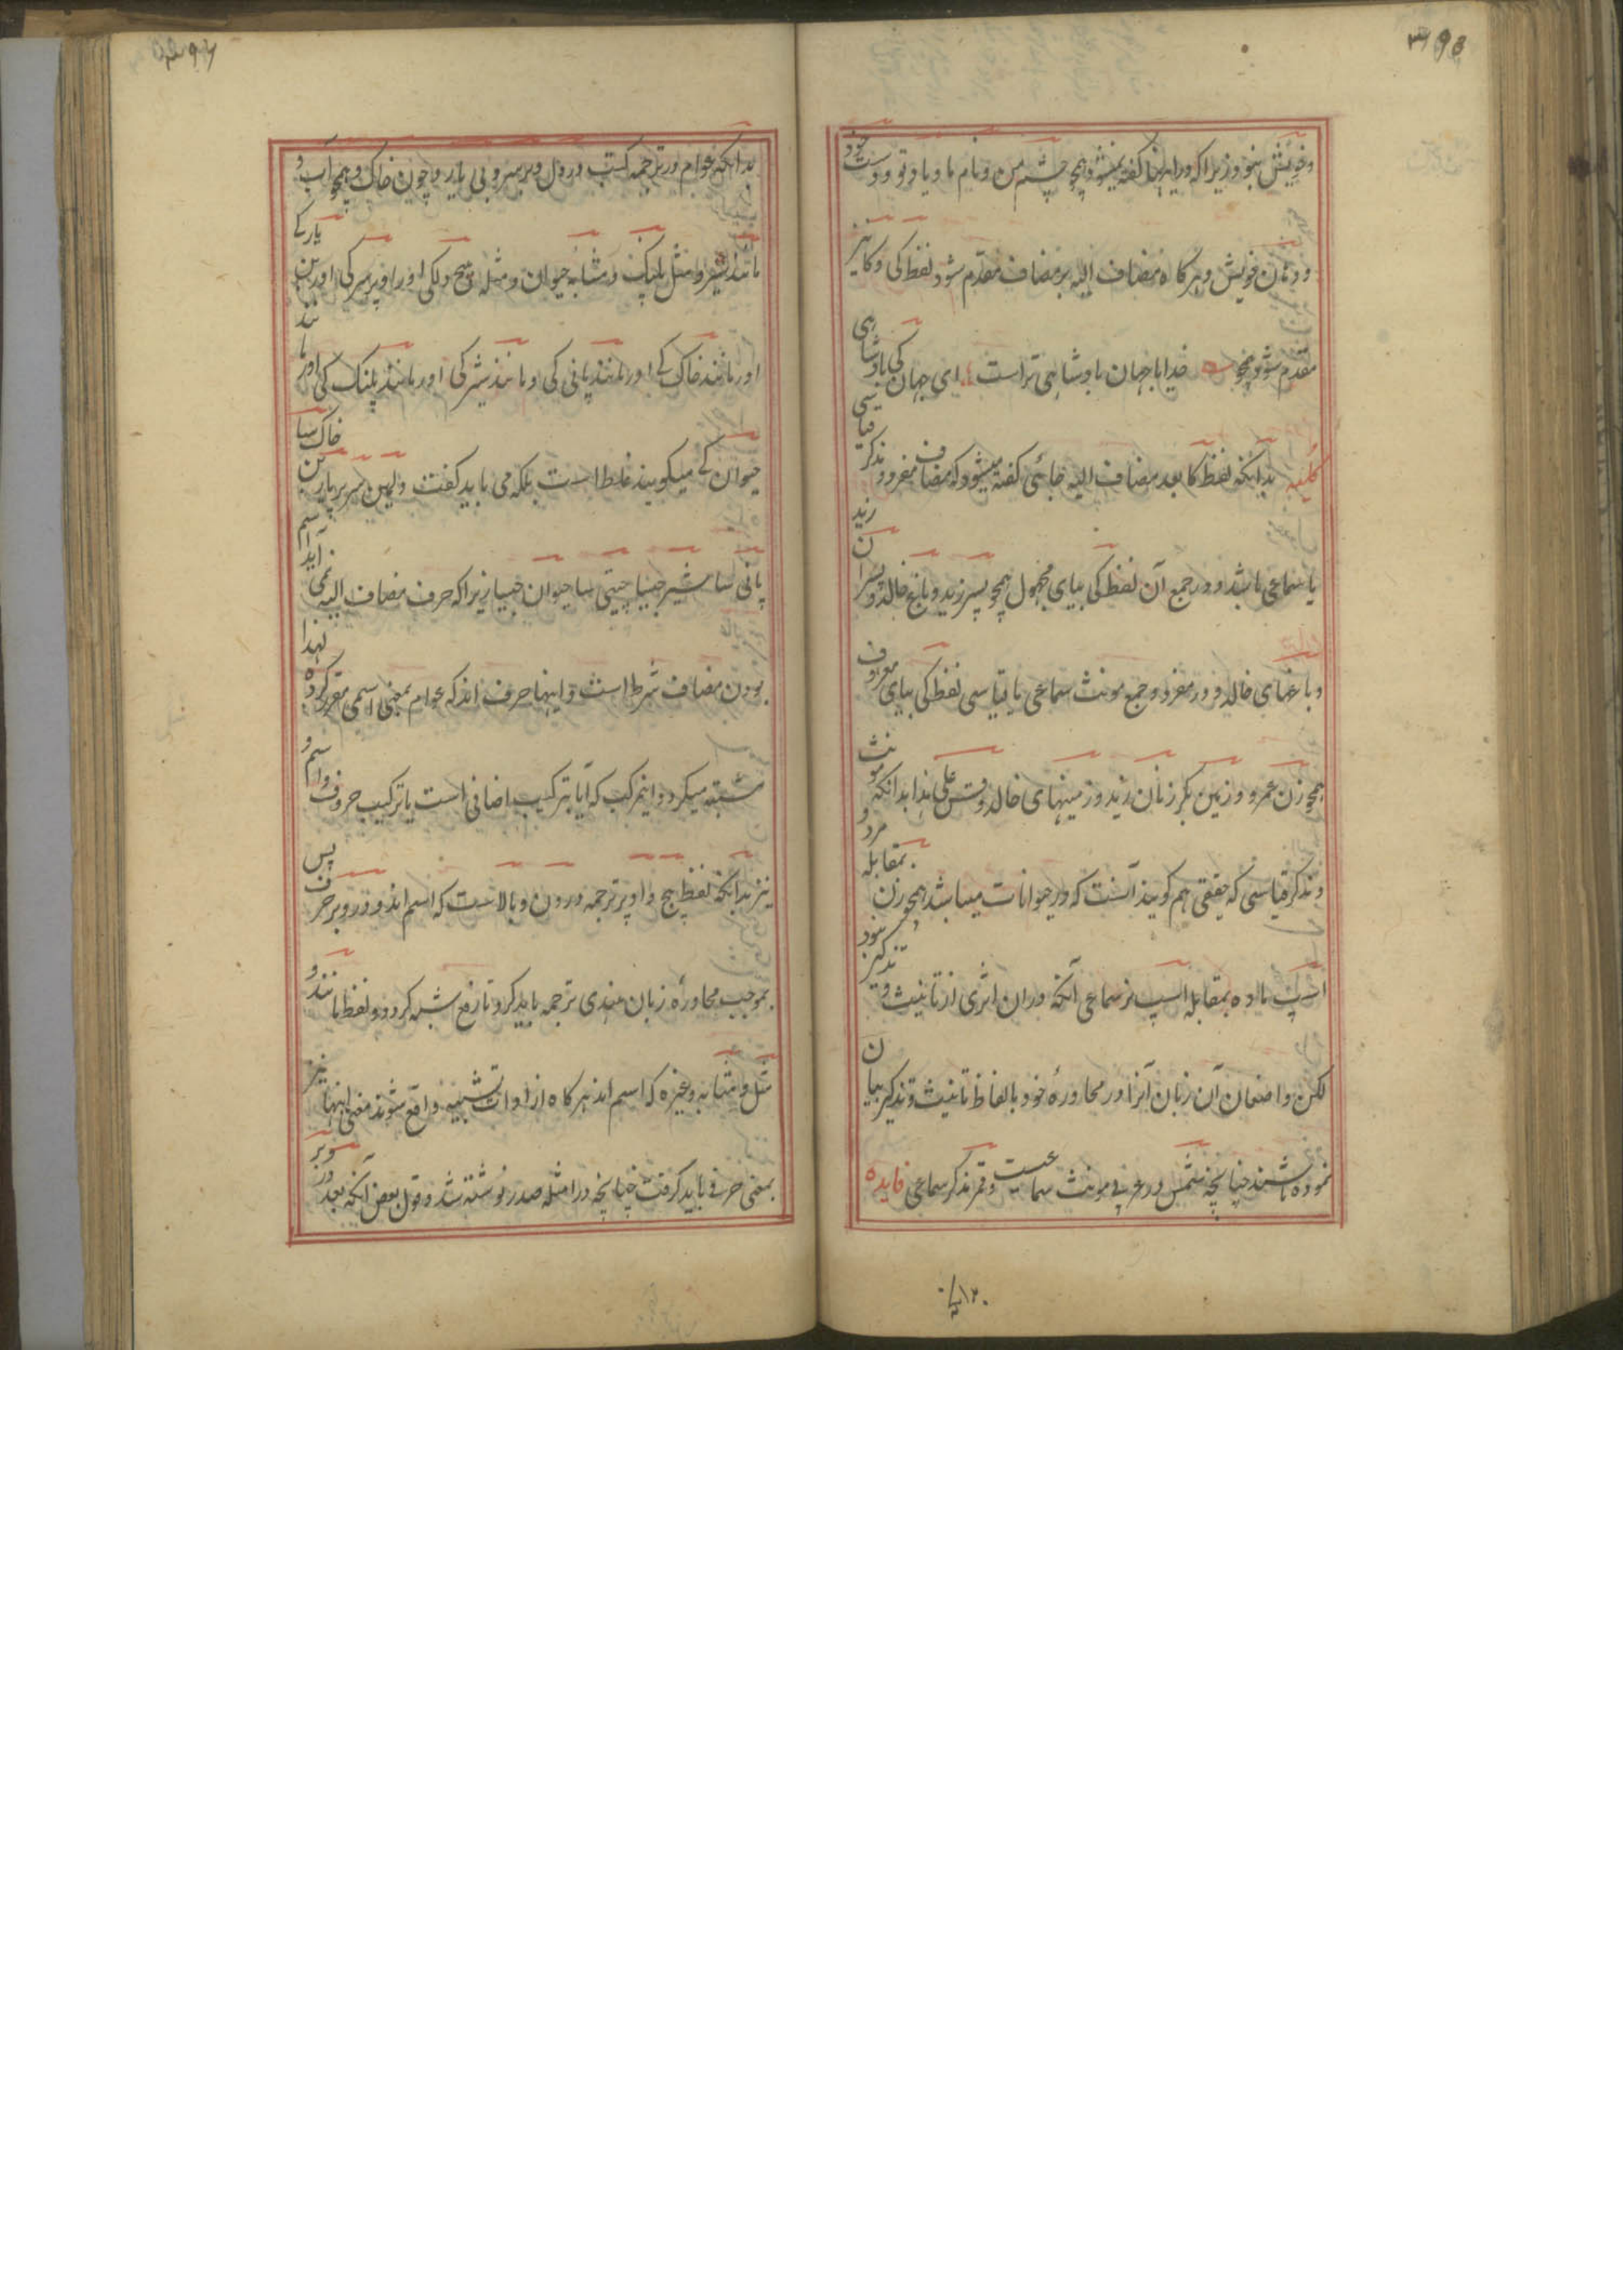 ۳۹۵
وخویش نبود زیراکه درایدرینجا کفته نمیشود همچو چشم من و نام ما و یار تو و دوست خود
و دندان خویش و هرکاه مضاف الیه بر مضاف مقدم شود لفظ کی و کا نیز
مقدم شود همچو خدایا جهان بادشاهی تراست ای جهان کی بادشاهی
کلیه بدانکه لفظ کا بعد مضاف الیه جائی کفته میشود که مضاف مفرد و مذکر قیاسی
یا سماعی باشد و در جمع آن لفظ کی بیای مجهول همچو پسر زید و باغ خالد و پسران زید
و باغهای خالد و در مفرد و جمع مونث سماعی یا قیاسی لفظ کی بیای معروف
همچو زن عمرو و زمین بکر زنان زید و زمینهای خالد و قس علی هذا بدانکه مونث
و مذکر قیاسی که حقیقی هم کویند آنست که در حیوانات میباشد همچو زن بمقابله مرد و
اسپ ماده بمقابله اسپ نر سماعی آنکه دران اثری از تانیث و تذکیر نبود
لکن واضعان آن زبان آنرا در محاورۀ خود بالفاظ تانیث و تذکیر بیان
نموده باشند چنانچه شمس در عربی مونث سماعیست و قمر مذکر سماعی فایده
۳۹۶
بدانکه عوام در ترجمه کتب در دل و بر سر و بی یار و چون خاک و همچو آب و
مانند شیر و مثل پلنک و مشابه حیوان و مثله بیچ دلکی اور اوپر سر کی اور بن یار کے
اور مانند خاک کے اور مانند پانی کی و مانند شیر کی اور مانند پلنک کی اور مانند
حیوان کے میکویند غلط است بلکه می باید کفت دلمین سر پر یار بن خاک سا
پانی سا شیر جیسا چیتی سا حیوان جیسا زیراکه حرف مضاف الیه نمی آید اسم
بودن مضاف شرط است و اینها حرف اند که عوام بمعنی اسمی مقرر کرده لهذا
مشتبه میکردد اینمرکب که آیا بترکیب اضافی است یا ترکیب حروف و اسم و
نیز بدانکه لفظ بیچ و اوپر ترجمه درون و بالاست که اسم اند و در و بر حرف پس
بموجب محاورۀ زبان هندی ترجمه باید کرد تا رفع شبه کردد و لفظ مانند و
مثل و مشابه و غیره که اسم اند هرکاه از ادات تشبیه واقع شوند معنی اینها نیز
بمعنی حرفی باید کرفت چنانچه در امثله صدر نوشته شد و قول بعض آنکه بعد در و بر